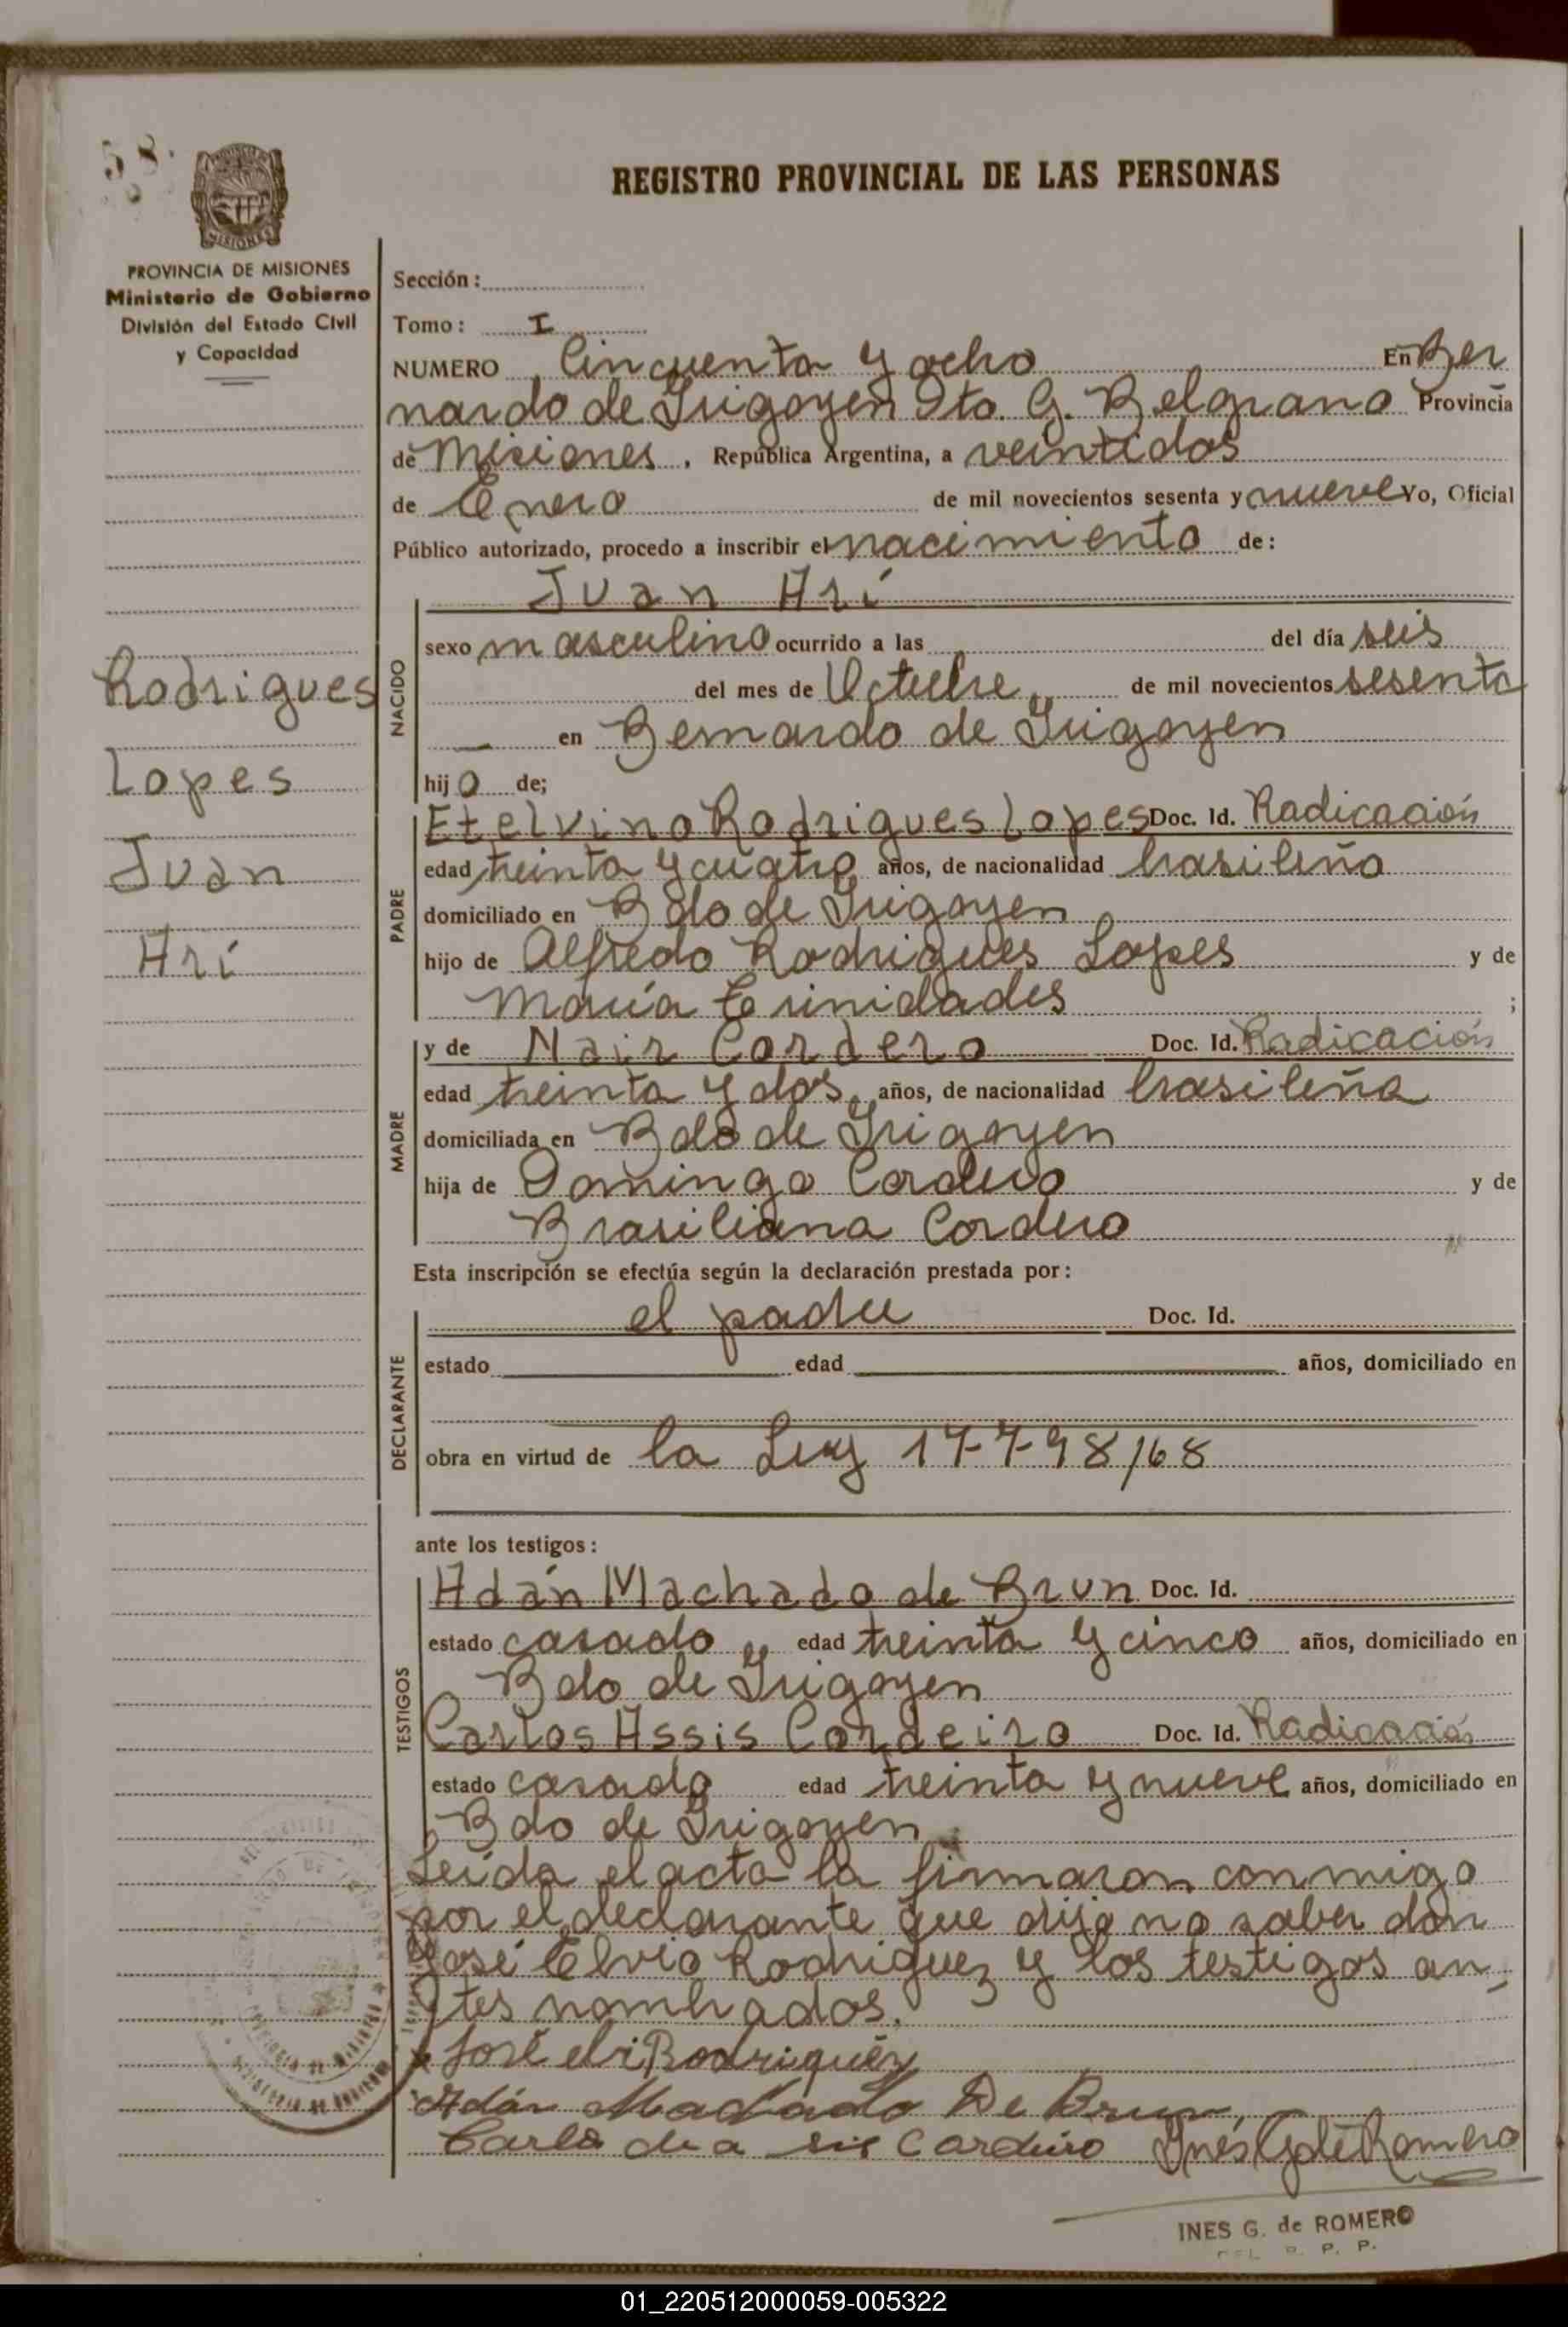 58.
REGISTRO PROVINCIAL DE LAS PERSONAS
MISIONES
PROVINCIA DE MISIONES
Ministerio de Gobierno
División del Estado Civil
y Capacidad
Rodrigues
Lopes
Juan
Arí
Sección:
Tomo: I
NUMERO Cincuenta y ocho En Ber
nardo de Irigoyen Dto. G. Belgrano Provincia
de Misiones, República Argentina, a veintidos
de Enero de mil novecientos sesenta y nueve Yo, Oficial
Público autorizado, procedo a inscribir el nacimiento de:
NACIDO
Juan Arí
sexo masculino ocurrido a las del día seis
del mes de Octubre de mil novecientos sesenta
— en Bernardo de Irigoyen
hijo de;
PADRE
Etelvino Rodrigues Lopes Doc. Id. Radicación
edad treinta y cuatro años, de nacionalidad brasileño
domiciliado en Bdo de Irigoyen
hijo de Alfredo Rodrigues Lopes y de
María Trinidades ;
MADRE
y de Nair Cordero Doc. Id. Radicación
edad treinta y dos años, de nacionalidad brasileña
domiciliada en Bdo de Irigoyen
hija de Domingo Cordero y de
Brasiliana Cordero
Esta inscripción se efectúa según la declaración prestada por:
DECLARANTE
el padre Doc. Id.
estado edad años, domiciliado en
obra en virtud de la Ley 17-798/68
ante los testigos:
TESTIGOS
Adán Machado de Brun Doc. Id.
estado casado edad treinta y cinco años, domiciliado en
Bdo de Irigoyen
Carlos Assis Cordeiro Doc. Id. Radicación
estado casado edad treinta y nueve años, domiciliado en
Bdo de Irigoyen
Leída el acta la firmaron conmigo
por el declarante que dijo no saber don
José Elvio Rodriguez y los testigos an_
tes nombrados.
José elvi Rodriguéz
Adán Machado De Brun
Carlo de a sis Cardeiro Inés G de Romero
INES G. de ROMERO
01_220512000059-005322